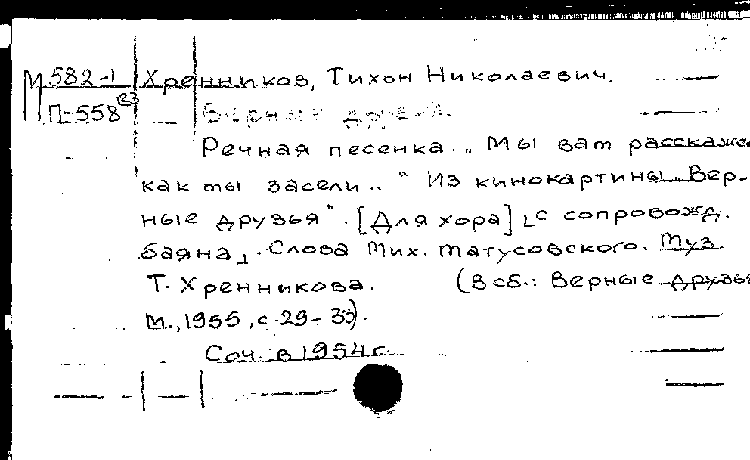 М 582-1 Хренников, Тихон Николаевич.
П-558 Верные друзья.
Речная песенка „Мы вам расскаже
как мы засели.." Из кинокартины „Вер-
ные друзья". [Для хора] с сопровожд.
баяна. Слова Мих. Матусовского. Муз.
Т. Хренникова. (В сб.: Верные друзья
М., 1955, с. 29-33).
Соч. в 1954 г.